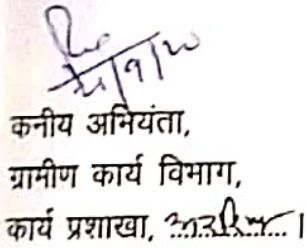 कनीय अभियंता,
ग्रामीण कार्य विभाग,
कार्य प्रशाखा, ..........।